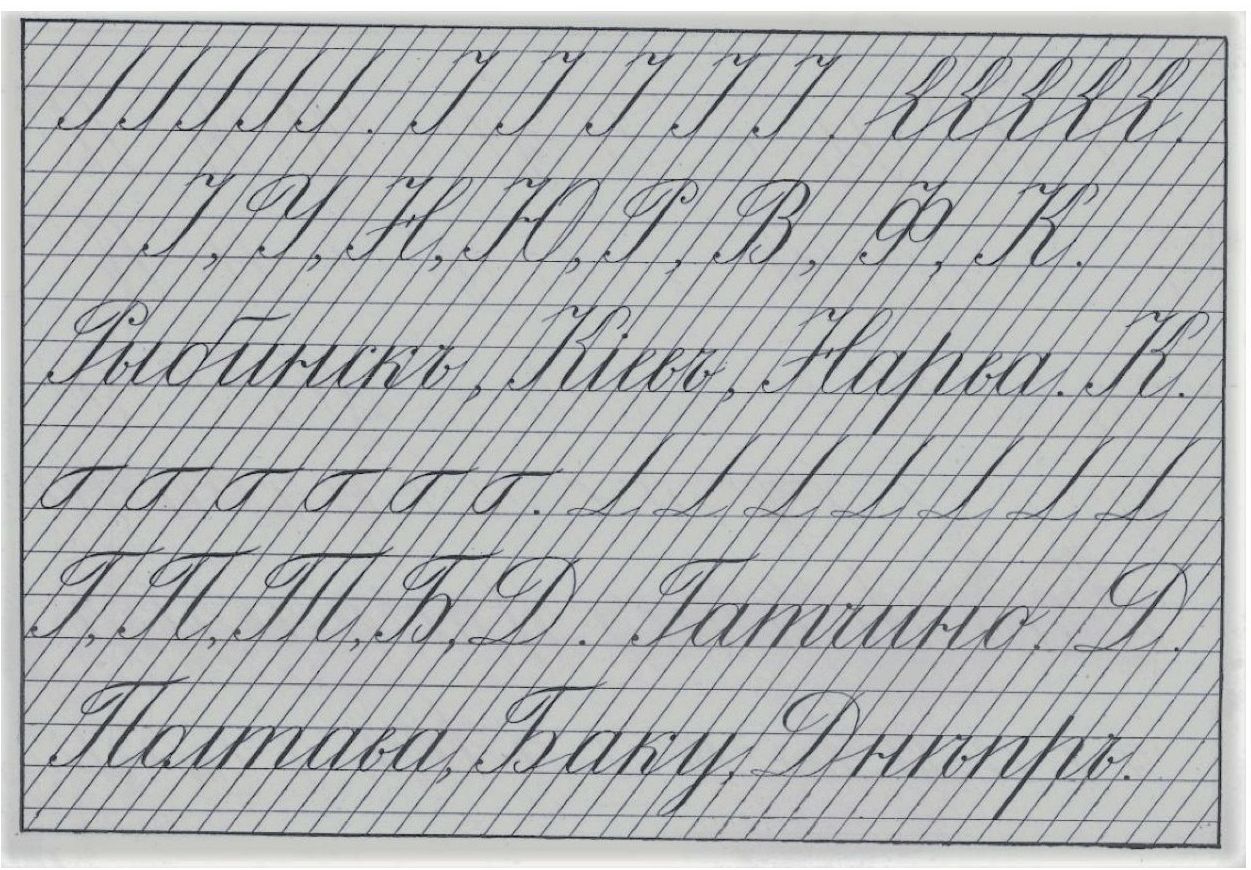 І, У, Н, Ю, Р, В, Ф, К.
Рыбинскъ, Кіевъ, Нарва. К.
Г, П, Т, Б, Д. Гатчино. Д.
Полтава, Баку, Днѣпръ.